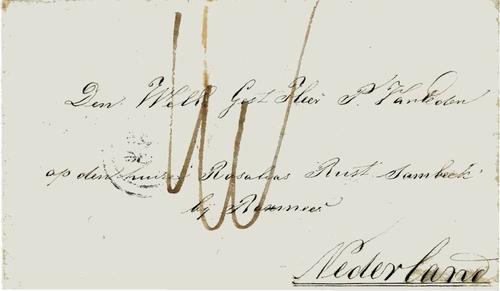 Den Well Gest Heer P. Van Eden
op den huize Rosalias Rust Sambeek
bij Boxmeer
Nederland